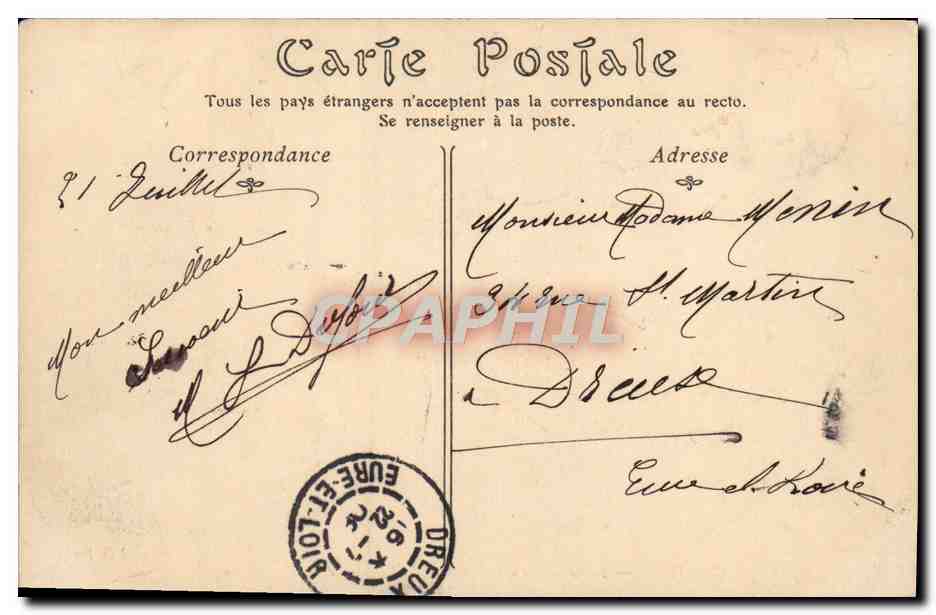 Carte Postale
Tous les pays étrangers n'acceptent pas la correspondance au recto.
Se renseigner à la poste.
Correspondance
Adresse
Juillet
Mon meilleur
Souvenir
Monsieur Madame Menin
rue St. Martin
à Dreux
Eure et Loire
DREUX
EURE-ET-LOIR
CPAPHIL